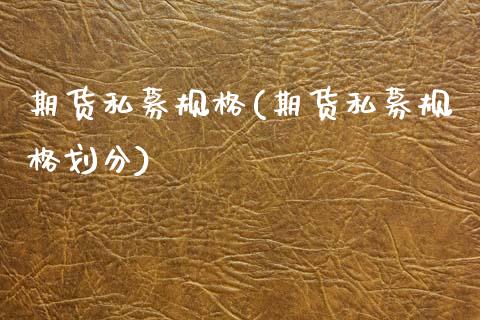 期货私募规格(期货私募规
格划分)